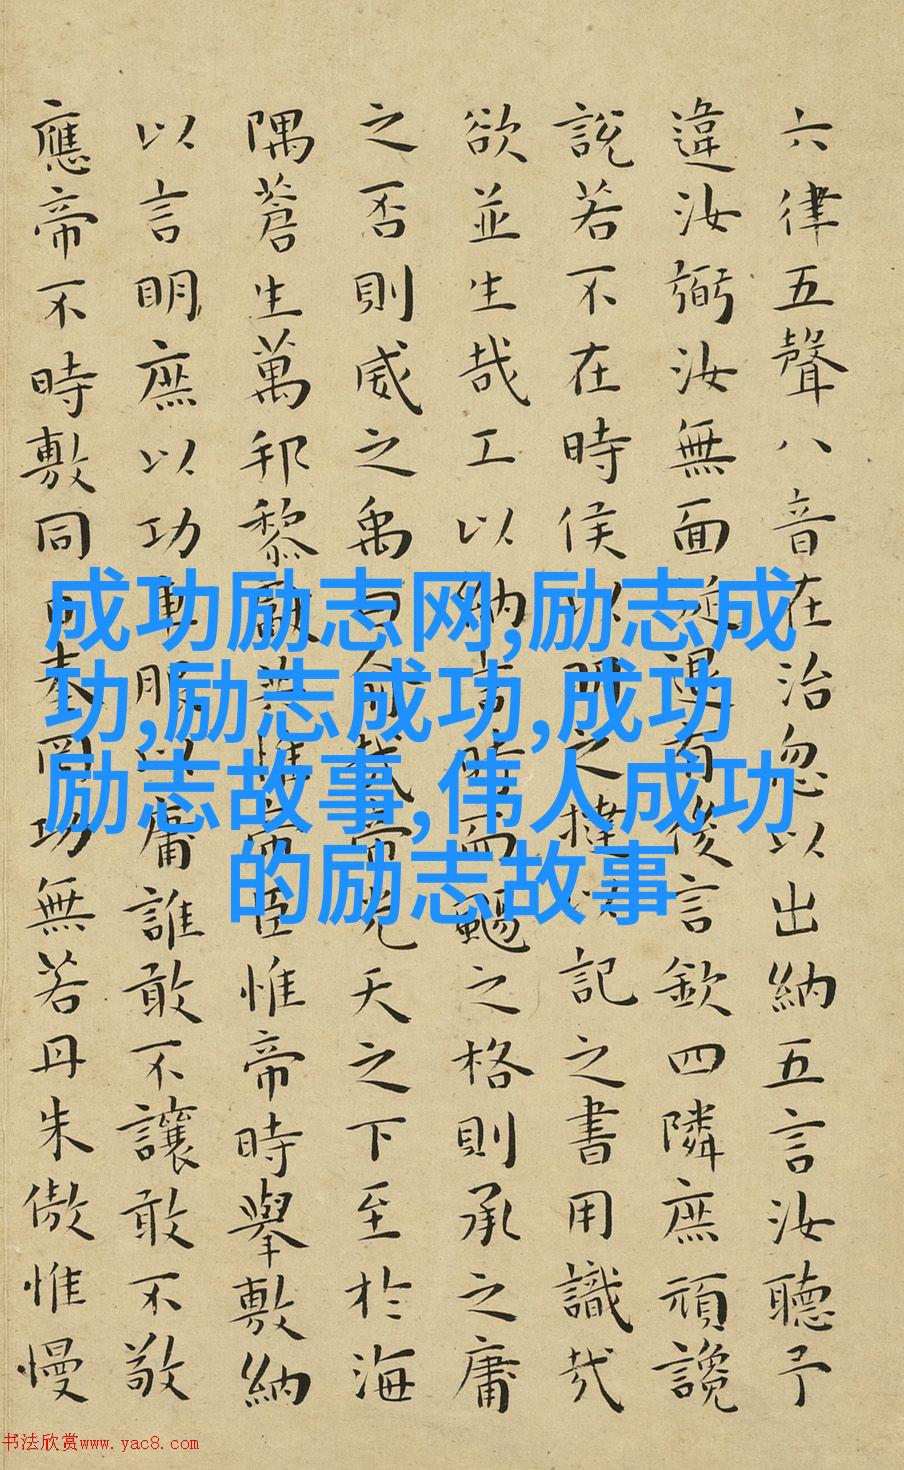 六律五聲八音在治忽以出納五言汝聽予
違汝弼汝無面從退有後言欽四隣庶頑讒
說若不在時侯以明之撻以記之書用識哉
欲並生哉工以納言時而颺之格則承之庸
之否則威之禹曰俞哉帝光天之下至於海
隅蒼生萬邦黎獻共惟帝臣惟帝時舉敷納
以言明庶以功車服以庸誰敢不讓敢不敬
應帝不時敷同日奏罔功無若丹朱傲惟慢
成功励志网,励志成
功,励志成功,成功
励志故事,伟人成功
的励志故事
书法欣赏www.yac8.com